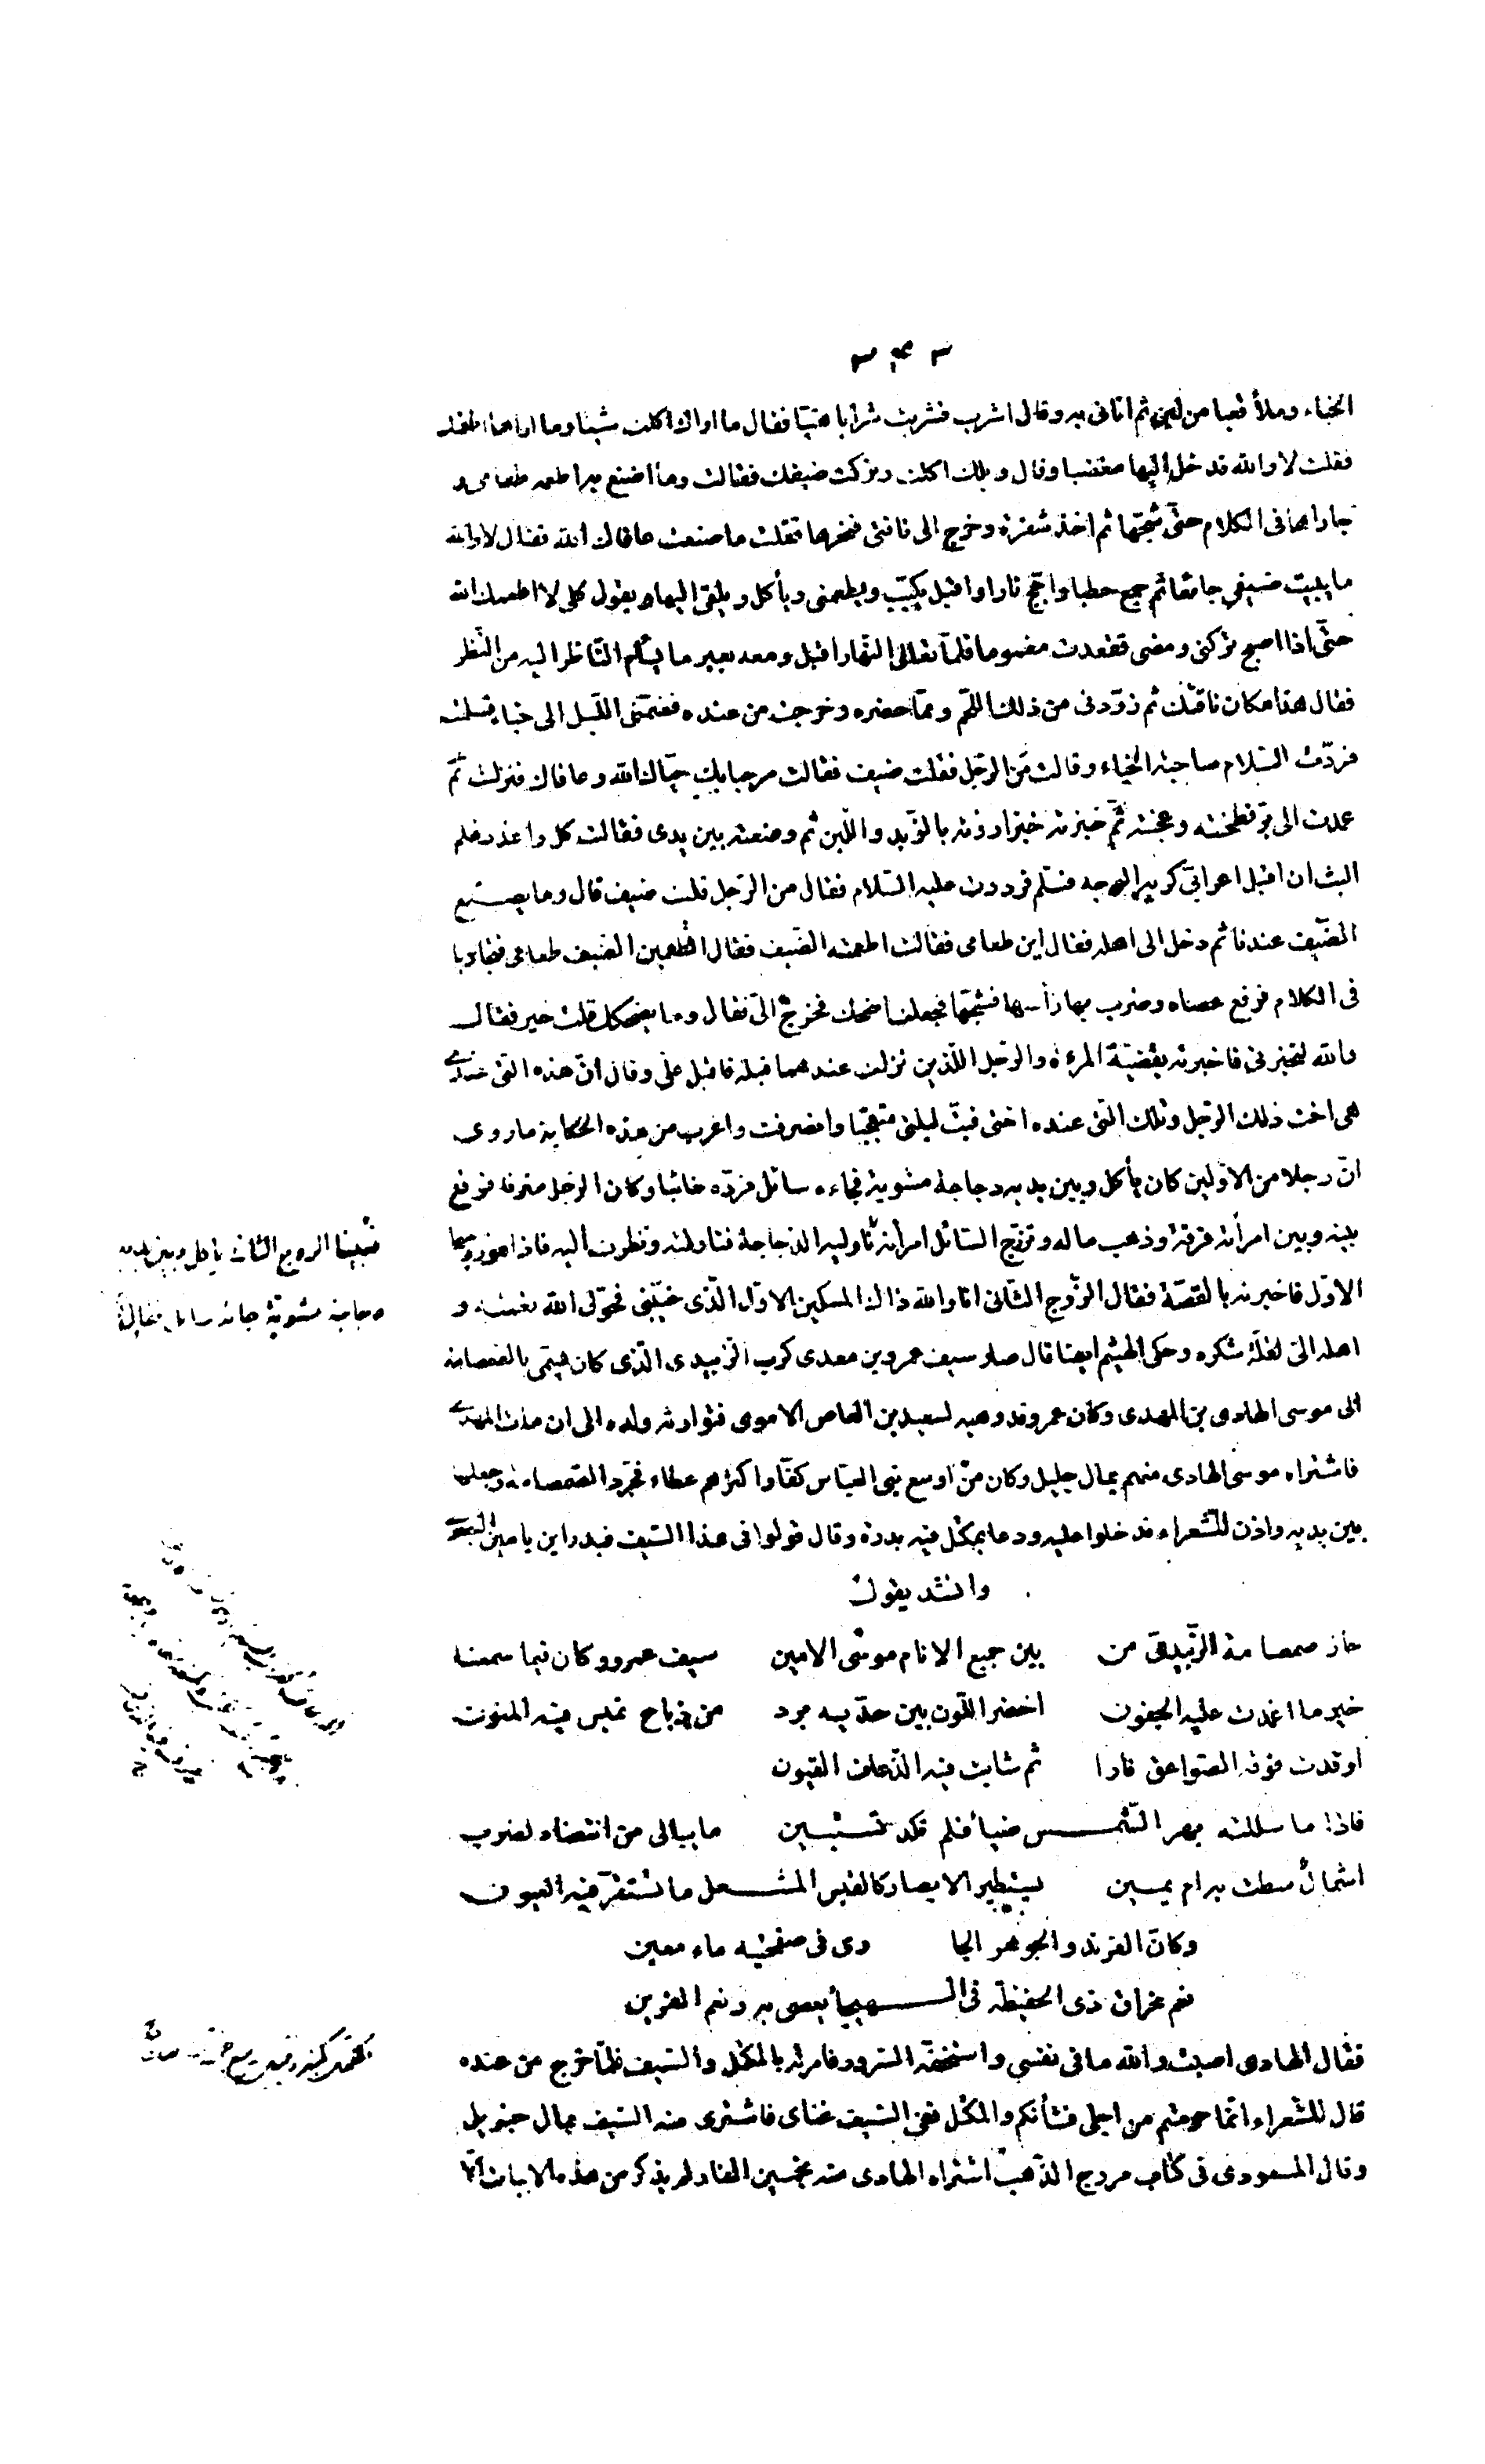 ٣٤٣
الخباء وملأ قعبا من لبن ثم اتانى به وقال اشرب فشربت شرابا هنيّا فقال ما اراك اكلت شيئا وما اراها اطعمتك
فقلت لا والله فدخل اليها مغضبا وقال ويلك اكلت وتركت ضيفك فقالت وما اصنع به اطعمه طعامى و
جاراها فى الكلام حتّى شجّها ثم اخذ شفرة وخرج الى ناقتى فنحرها فقلت ما صنعت عافاك الله فقال لا والله
ما يبيت ضيفي جائعا ثم جمع حطبا واجّج نارا واقبل يكبّب ويطعمنى ويأكل ويلقى اليها ويقول كلى لا اطعمك الله
حتّى اذا اصبح تركنى ومضى فقعدت مغموما فلمّا تعالى النّهار اقبل ومعه بعير ما يسأم النّاظر اليه من النّظر
فقال هذا مكان ناقتك ثم زوّدنى من ذلك اللّحم وممّا حضره وخرجت من عنده فضمّنى اللّيل الى خباء فسلمت
فردّت السّلام صاحبة الخباء وقالت من الرجل فقلت ضيف فقالت مرحبا بك حيّاك الله وعافاك فنزلت ثمّ
عمدت الى برّ فطحنته وعجنته ثمّ خبزته خبزا روته بالزّبد واللّبن ثم وضعته بين يدى فقالت كل واعذر فلم
البث ان اقبل اعرابىّ كريه الوجه فسلّم فرددت عليه السّلام فقال من الرّجل قلت ضيف قال وما يصنع
الضّيف عندنا ثم دخل الى اهله فقال اين طعامى فقالت اطعمته الضّيف فقال اتطعمين الضيف طعامى فتجاوبا
فى الكلام فرفع عصاه وضرب بها رأسها فشجّها فجعلت اضحك فخرج الىّ فقال وما يضحكك قلت خير فقال
والله لتخبرنى فاخبرته بقضيّة المرءة والرّجل اللّذين نزلت عندهما قبله فاقبل علىّ وقال انّ هذه التى عندى
هى اخت ذلك الرّجل وتلك التى عنده اختى فبتّ ليلتى متعجّبا وانصرفت واغرب من هذه الحكاية ما روى
انّ رجلا من الاوّلين كان يأكل وبين يديه دجاجة مشوية فجاءه سائل فردّه خائبا وكان الرّجل مترفا فوقع
بينه وبين امرأته فرقة وذهب ماله وتزوّج السّائل امرأته ناوليه الدّجاجة فناولته ونظرت اليه فاذا هو زوجها
الاوّل فاخبرته بالقصّة فقال الزّوج الثّانى انا والله ذاك المسكين الاوّل الّذى خيّبنى فحوّل الله نعمته و
اهله الىّ لقلّة شكره وحكى الهيثم ايضا قال صار سيف عمرو بن معدى كرب الزّبيدى الّذى كان يسمّى بالصّمصامة
الى موسى الهادى بن المهدى وكان عمرو قد وهبه لسعيد بن العاص الاموى فتوارثه ولده الى ان مات المهدى
فاشتراه موسى الهادى منهم بمال جليل وكان من اوسع بنى العبّاس كفّا واكثرهم عطاء فجرّد الصّمصامة وجعله
بين يديه واذن للشّعراء فدخلوا عليه ودعا بمكتل فيه بدرة وقال قولوا فى هذا السّيف فبدر ابن يامين البصرى
وانشد يقول
حاز صمصامة الزّبيدىّ من بين جميع الانام موسى الامين سيف عمرو وكان فيما سمعنا
خير ما اغمدت عليه الجفون اخضر اللّون بين حدّيه برد من ذباح تميس فيه المنون
اوقدت فوقه الصّواعق نارا ثم شابت فيه الذّعاف القيون
فاذا ما سللته بهر الشّمس ضيأ فلم تكد تستبين ما يبالى من انتضاه لضرب
اشمال سطت به ام يمين يستطير الابصار كالقبس المشعل ما تستقرّ فيه العيون
وكانّ الفرند والجوهر الجا رى فى صفحتيه ماء معين
نعم مخراق ذى الحفيظة فى الهيجأ يعصى به ونعم القرين
فقال الهادى اصبت والله ما فى نفسى واستخفّه السّرور فامر له بالمكتل والسّيف فلمّا خرج من عنده
قال للشّعراء انّما حرمتم من اجلى فشأنكم والمكتل ففى السّيف غناى فاشترى منه السّيف بمال جزيل
وقال المسعودى فى كتاب مروج الذّهب اشتراه الهادى منه بخمسين الفا ولم يذكر من هذه الابيات الّا
فبينا الزوج الثانى ياكل وبين يديه
دجاجة مشوية جائه سائل فقال